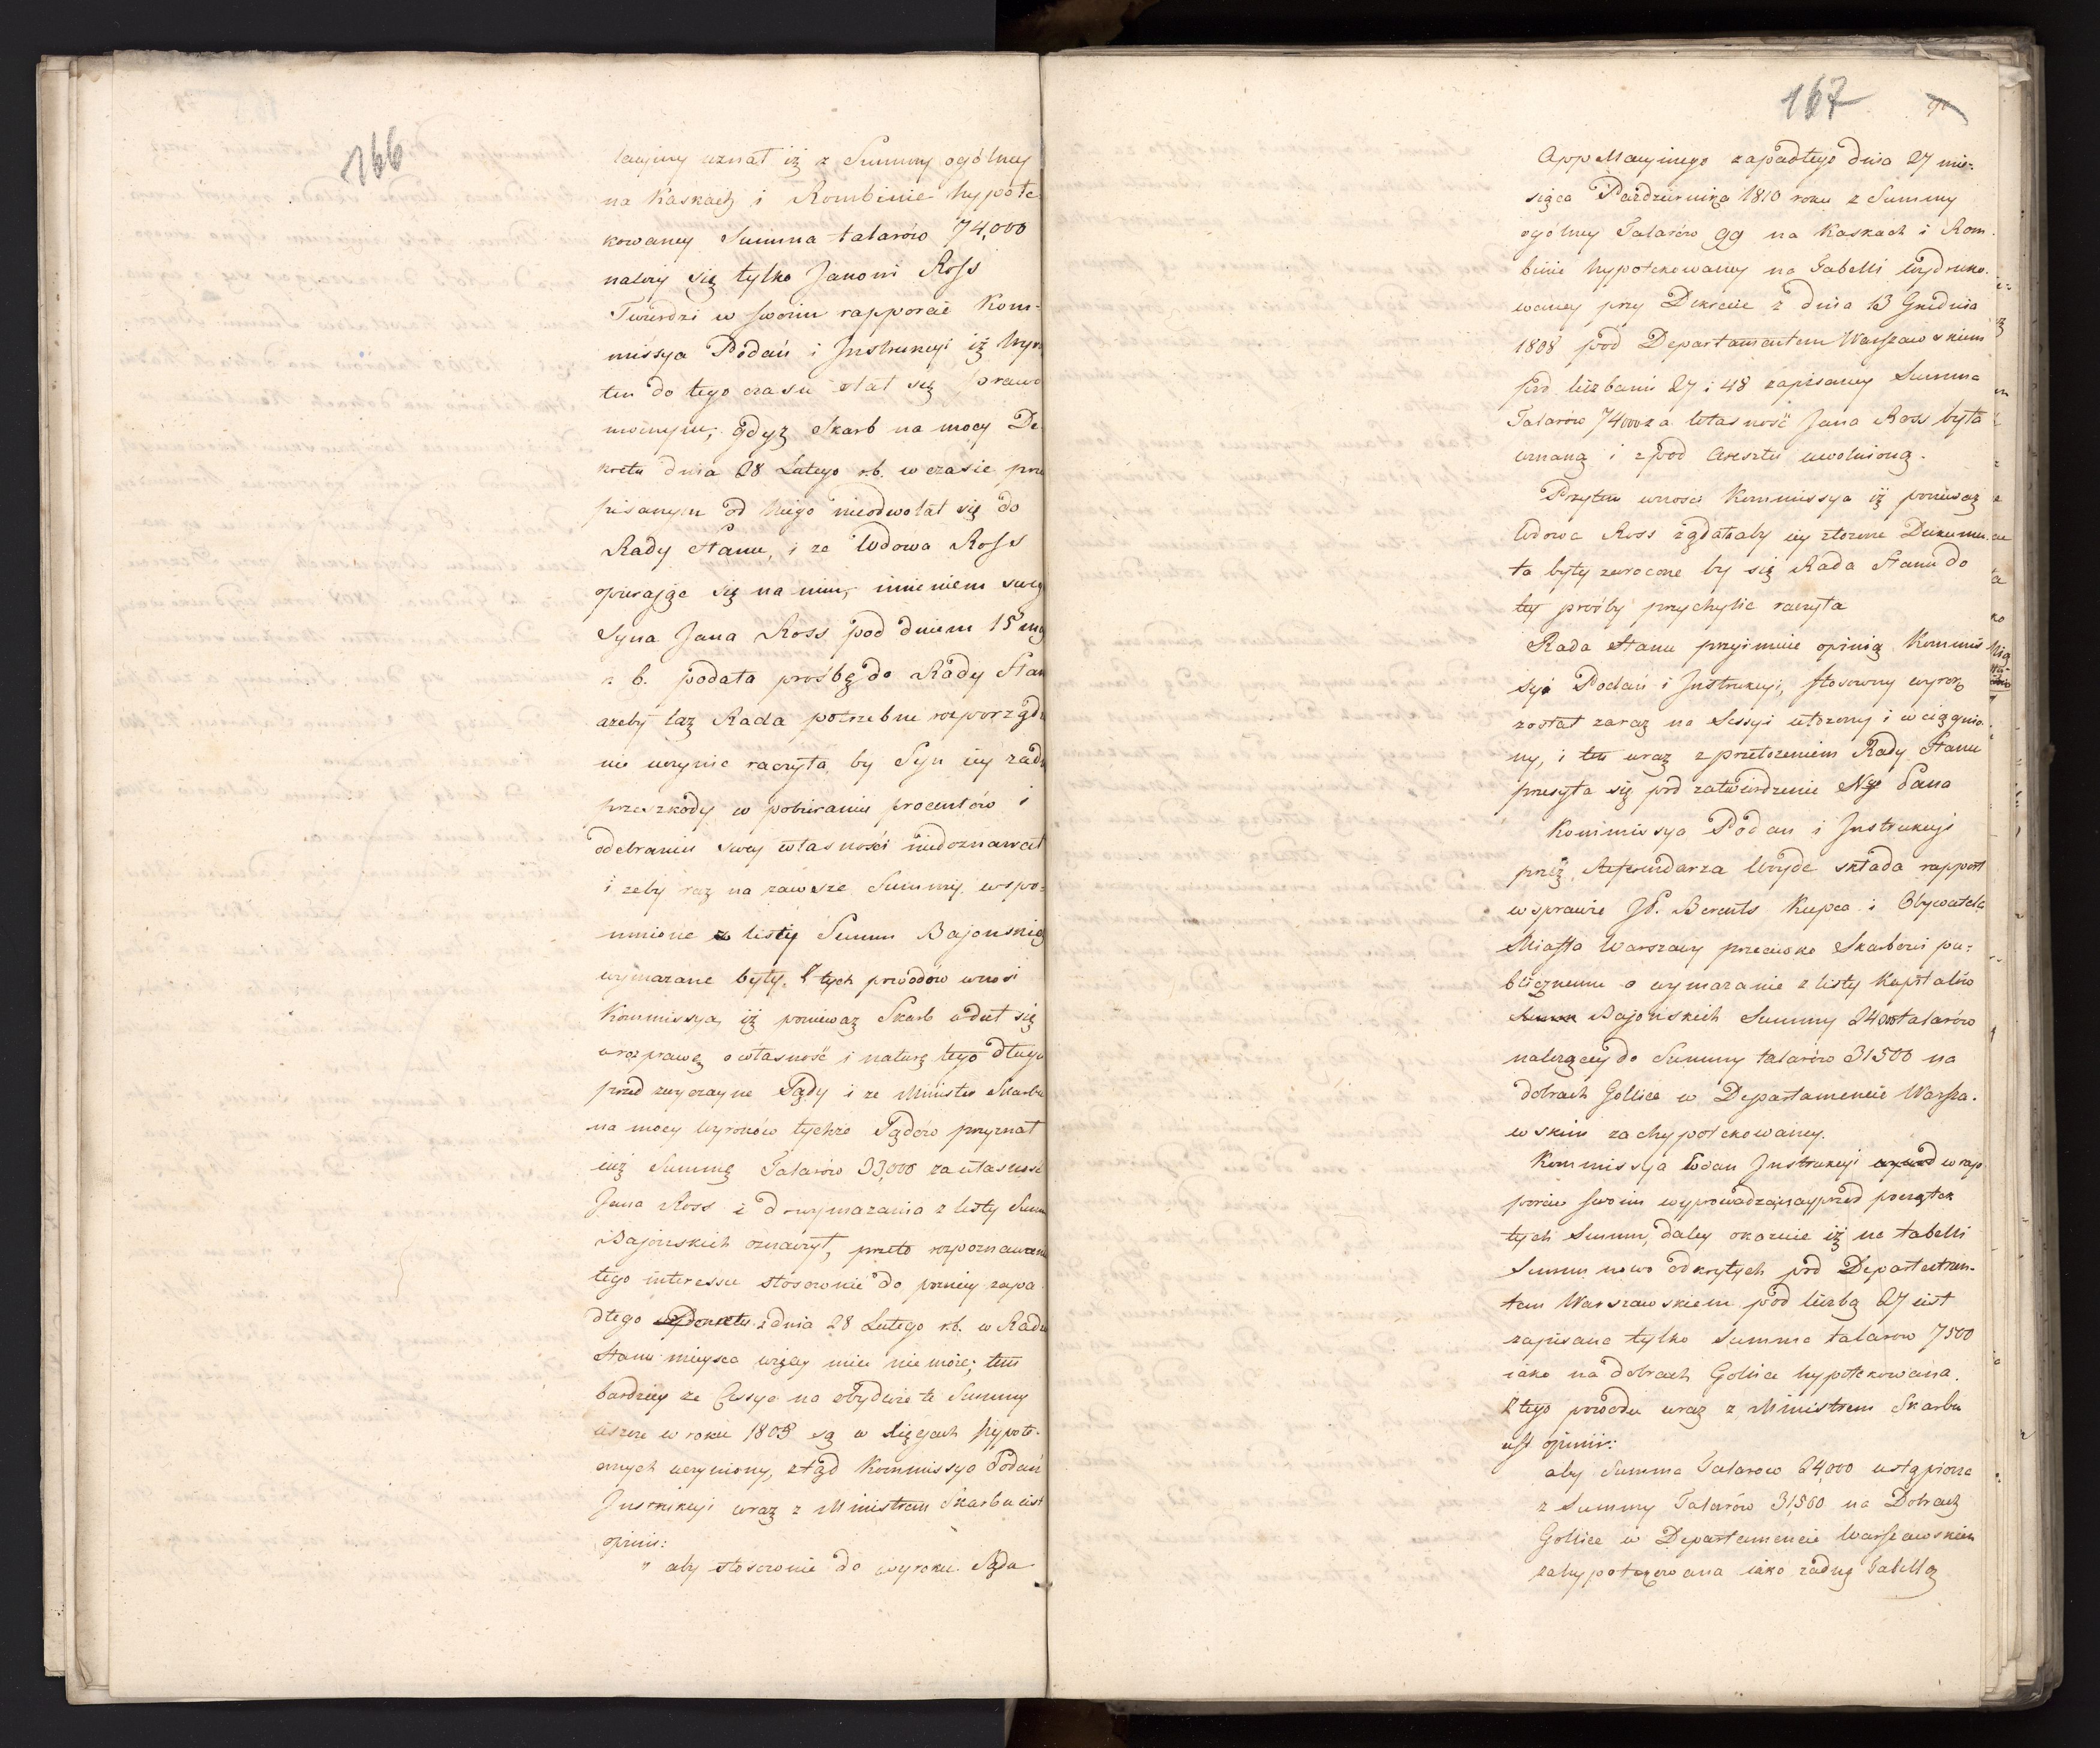 166
lacyiny uznał iż z Summy ogólney
na Kaskach i Rombinie hypote-
kowaney Summa talarów 74,000
należy się tylko Janowi Ross
Twierdzi w swoim rapporcie Kom-
missya Podań i Instrukcyi iż wyr
ten do tego czasu stał się prawo
mocnym; gdyż Skarb na mocy De
kretu dnia 28 Lutego r.b. w czasie prze
pisanym od niego nieodwołał się do
Rady Stanu, i ze Wdowa Ross
opierając się na nim, imieniem sweg
Syna Jana Ross pod dniem 15 mg
r. b. podała prośbę do Rady Stan
ażeby taż Rada potrzebne rozporządz
nie uczynić raczyła, by Syn iey żadn
przeszkody w pobieraniu procentów i
odebraniu swey własności niedoznawał
i żeby raz na zawsze Summy wspo-
mnione z listy Summ Bajońskich
wymazane były. Z tych powodów wnosi
Kommissya, iż ponieważ Skarb udał się
w rozprawę o własność i naturę tego długu
przed zwyczayne Sądy i ze Minister Skarbu
na mocy wyroków tychże Sądów przyznał
iuż Summę Talarów 33,000 za własność
Jana Ross i do wymazania z listy Summ
Bajońskich oznaczył, przeto rozpoznawanie
tego interessu stosownie do poźniey zapa
dłego Dekretu z dnia 28 Lutego r.b. w Radzie
Stanu mieysca więcey mieć nie może; tem
bardziey ze Cessye na obydwie te Summy
ieszcze w roku 1805 są w xięgach hypote-
cznych uczyniony, ztąd Kommissya Podań
Instrukcyi wraz z Ministrem Skarbu iest
opinii:
" aby stosownie do wyroku Sądu
167
Appellacyinego zapadłego dnia 27 mie-
siąca Października 1810 roku z Summy
ogólney Talarów 99 na Kaskach i Rom-
binie hypotekowaney na Tabelli wydruko-
waney przy Dekrecie z dnia 13 Grudnia
1808 pod Departamentem Warszawskim
pod liczbami 27 i 48 zapisaney Summa
Talarów 74000 za własność Jana Ross była
uznaną i zpod Aresztu uwolnioną.
Przytem wnosi Kommissya iż ponieważ
Wdowa Ross żądałaby iey złożone Dokumen
ta były zwrocone by się Rada Stanu do
tey prośby przychylić raczyła
Rada Stanu przyimuie opinią Kommis
syi Podań i Instrukcyi, stosowny wyrok
został zaraz na Sessyi ułożony i wciągnio
ny, i ten wraz z przełożeniem Rady Stanu
przesyła się pod zatwierdzenie Nyo Pana
Kommissya Podań i Instrukcyi
przez Referendarza Woyde składa rapport
w sprawie JP. Berents Kupca i Obywatela
Miasta Warszawy przeciwko Skarbowi pu-
blicznemu o wymazanie z listy Kapitałów
Summ Bajońskich Summy 24000 talarów
należącey do Summy talarów 31500 na
dobrach Gollice w Departamencie Warsza-
wskim zachypotekowaney.
Kommissya Podań Instrukcyi wywód w rap
porcie swoim wyprowadzaiąc naypród początek
tych Summ, daley okazuie iż na tabelli
Summ nowo odkrytych pod Departamen-
tem Warszawskiem pod liczbą 27 iest
zapisana tylko Summa talarow 7500
iako na dobrach Golice hypotekowana.
Z tego powodu wraz z Ministrem Skarbu
iest opinii:
aby Summa Talarow 24,000 ustąpiona
z Summy Talarów 31,500 na Dobrach
Gollice w Departamencie Warszawskim
zahypotekowana iako żadną Tabellą